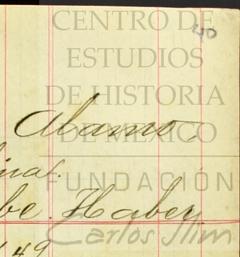 40
CENTRO DE
ESTUDIOS
DE HISTORIA
Alamo.
DE MÉXICO
FUNDACIÓN
be. Haber.
Carlos Slim
149